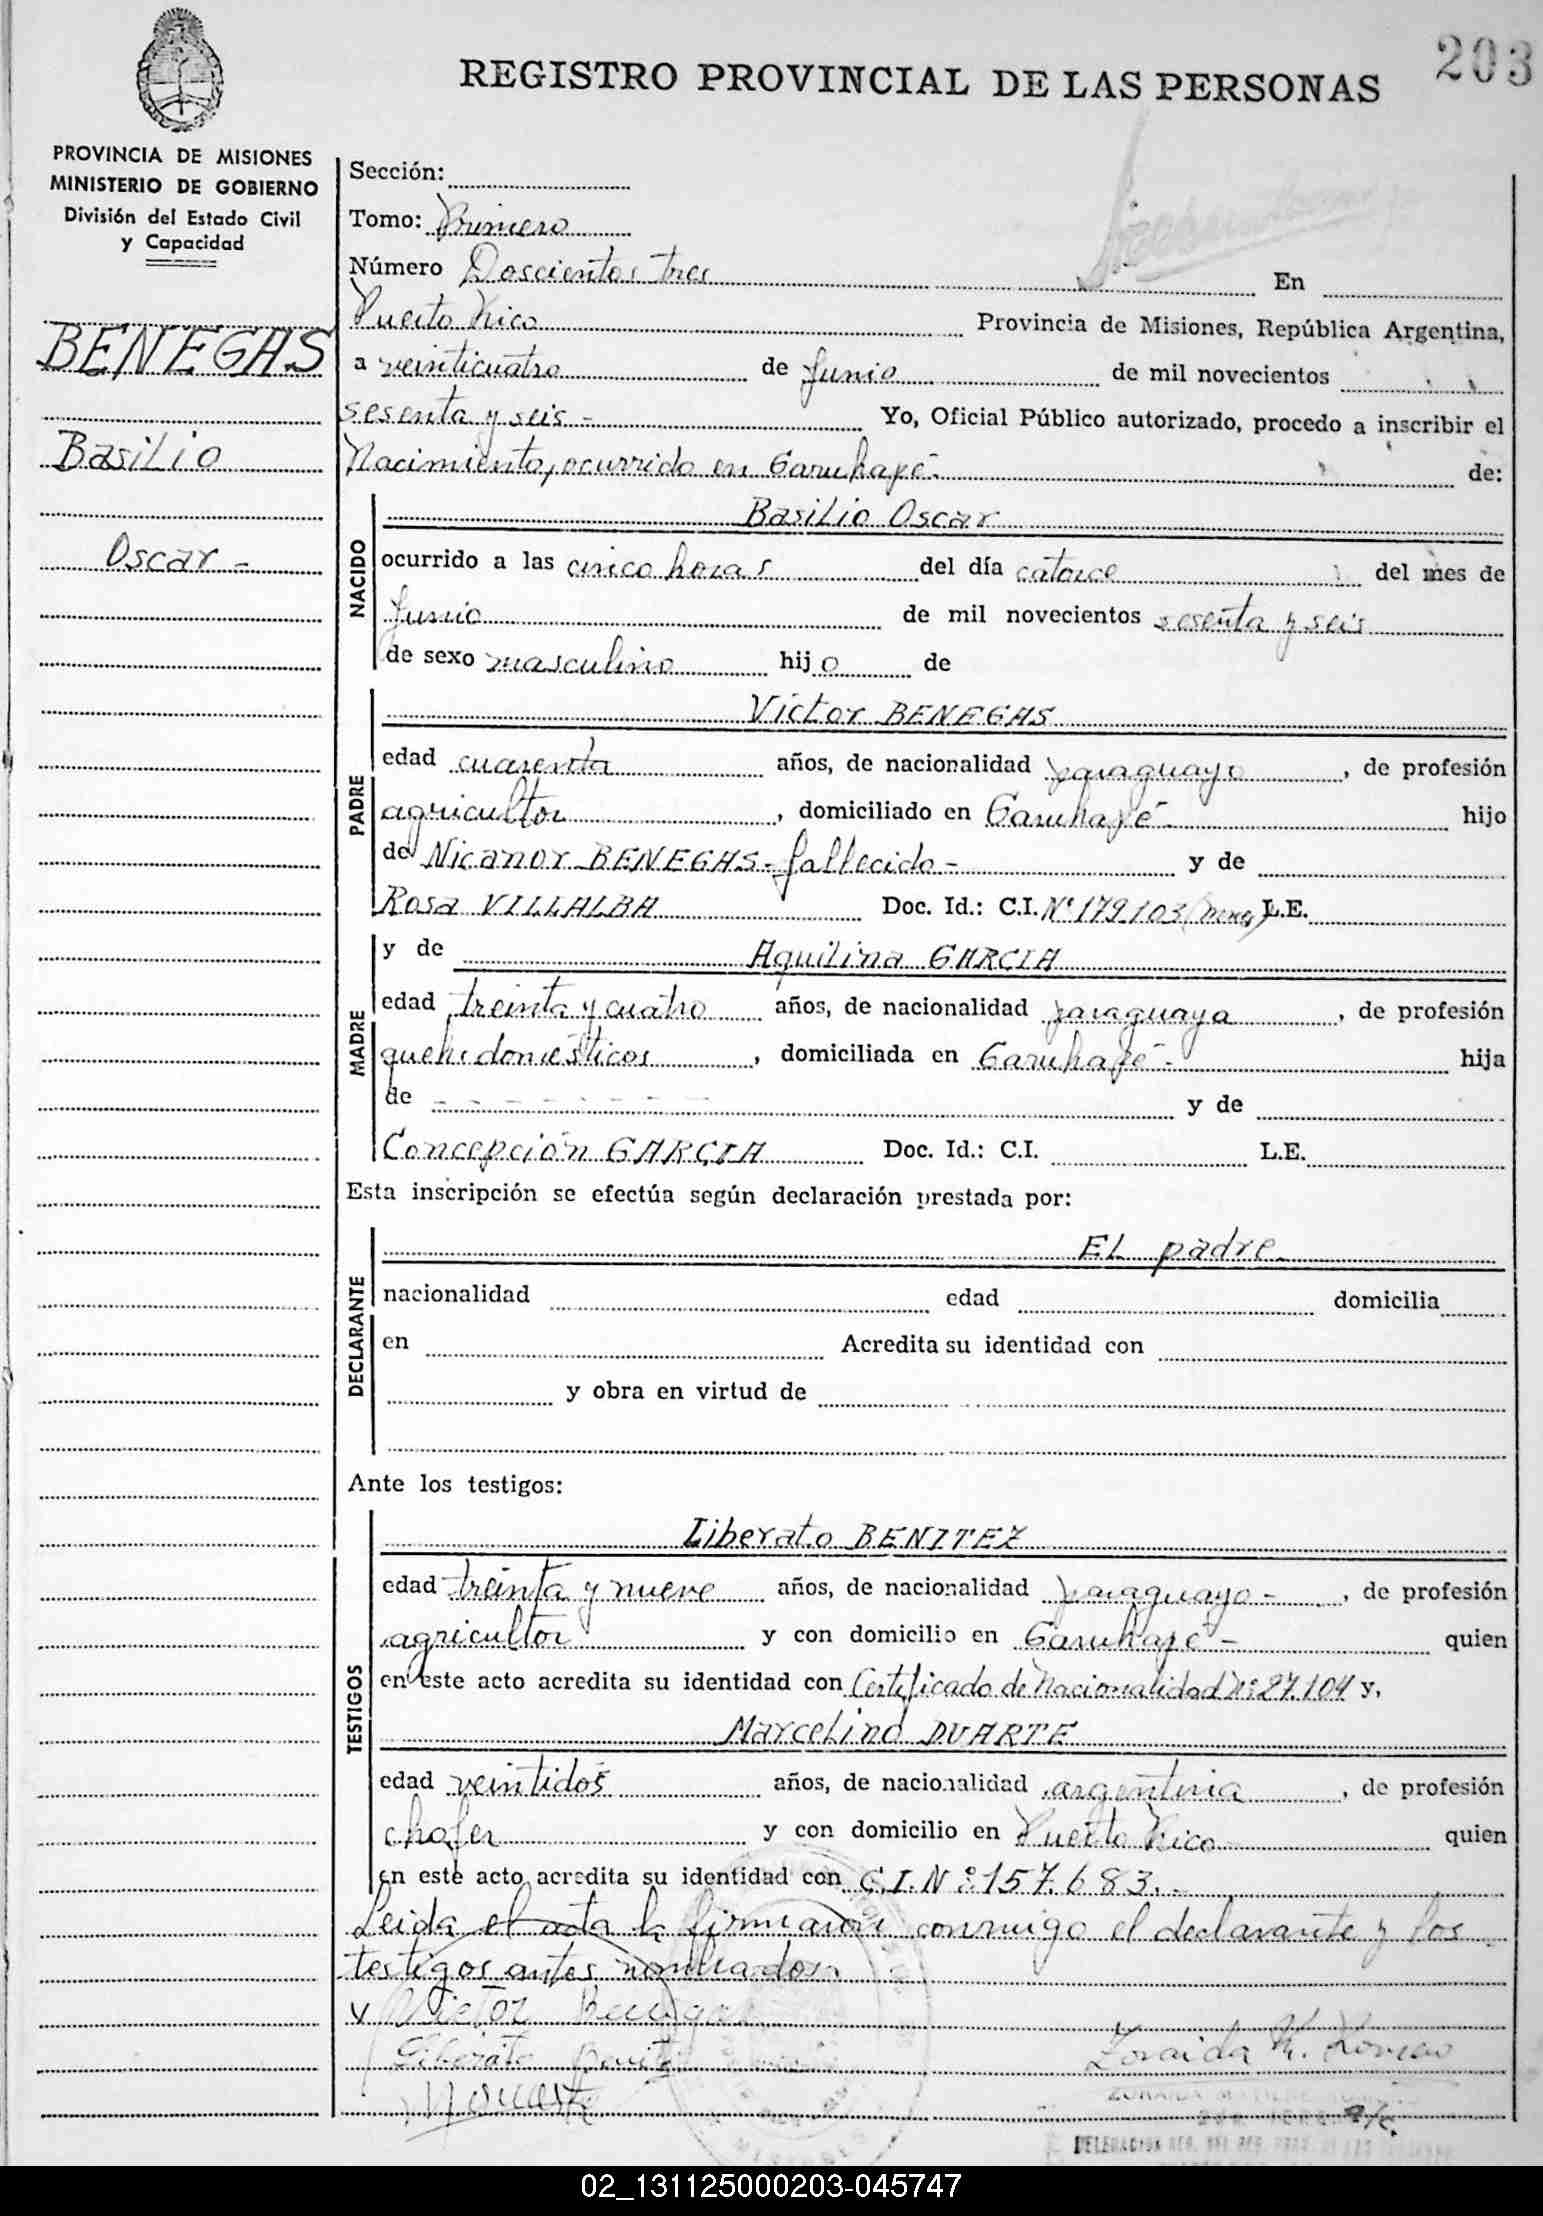 203
REGISTRO PROVINCIAL DE LAS PERSONAS
PROVINCIA DE MISIONES
MINISTERIO DE GOBIERNO
División del Estado Civil
y Capacidad
BENEGAS
Basilio
Oscar -
Sección:
Tomo: Primero
Número Doscientos tres En
Puerto Rico Provincia de Misiones, República Argentina,
a veinticuatro de Junio de mil novecientos
sesenta y seis - Yo, Oficial Público autorizado, procedo a inscribir el
Nacimiento, ocurrido en Garuhapé - de:
NACIDO
Basilio Oscar
ocurrido a las cinco horas del día catorce del mes de
Junio de mil novecientos sesenta y seis
de sexo masculino hijo de
PADRE
Víctor BENEGAS
edad cuarenta años, de nacionalidad paraguayo, de profesión
agricultor, domiciliado en Garuhapé - hijo
de Nicanor BENEGAS - fallecido - y de
Rosa VILLALBA Doc. Id.: C.I. Nº 179103 L.E.
MADRE
y de Aquilina GARCIA
edad treinta y cuatro años, de nacionalidad paraguaya, de profesión
queh. domésticos, domiciliada en Garuhapé - hija
de - - - - - - - - - y de
Concepción GARCIA Doc. Id.: C.I. L.E.
Esta inscripción se efectúa según declaración prestada por:
DECLARANTE
EL padre
nacionalidad edad domicilia
en Acredita su identidad con
y obra en virtud de
Ante los testigos:
TESTIGOS
Liberato BENITEZ
edad treinta y nueve años, de nacionalidad paraguayo -, de profesión
agricultor y con domicilio en Garuhapé - quien
en este acto acredita su identidad con Certificado de Nacionalidad Nº 27.104 y,
Marcelino DUARTE
edad veintidós años, de nacionalidad argentina, de profesión
chofer y con domicilio en Puerto Rico quien
en este acto acredita su identidad con C.I. Nº 157.683. -
Leida el acta la firmaron conmigo el declarante y los
testigos antes nombrados.
Victor Benegas
Liberato Benitez
Zoraida M. Romero
a/c.
DELEGACION
02_131125000203-045747